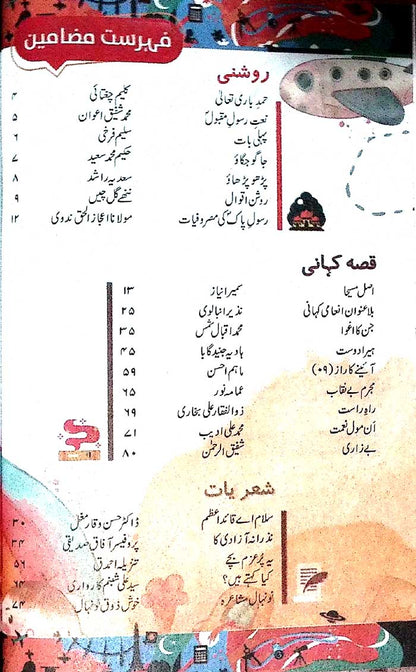 فہرست مضامین
روشنی
حمد باری تعالیٰ کلیم چغتائی ۴
نعت رسول مقبولؐ محمد شفیق اعوان ۵
پہلی بات سلیم فرخی ۶
جاگو جگاؤ حکیم محمد سعید ۷
پڑھو پڑھاؤ سعدیہ راشد ۸
روشن اقوال ننھے گل چیں ۹
رسول پاکؐ کی مصروفیات مولانا اعجاز الحق ندوی ۱۲
قصہ کہانی
اصل مسیحا سمیرا نیاز ۱۳
بلا عنوان انعامی کہانی نذیر انبالوی ۲۵
جن کا اغوا محمد اقبال شمس ۳۵
ہیرا دوست ہادیہ جنید گابا ۴۵
آئینے کا راز (۰۹) ماہم احسن ۵۹
مجرم بے نقاب عمامہ نور ۶۵
راہِ راست ذوالفقار علی بخاری ۶۹
اَن مول نعمت محمد علی ادیب ۷۱
بے زاری شفیق الرحمٰن ۸۰
شعریات
سلام اے قائد اعظم ڈاکٹر حسن وقار مغل ۳۰
نذرانہ آزادی کا پروفیسر آفاق صدیقی ۳۴
یہ پُرعزم بچے تنزیلہ احمد ۵۶
کیا کہتے ہیں؟ سید علی شبنم کارواری ۶۴
نونہال مشاعرہ خوش ذوق نونہال ۷۴